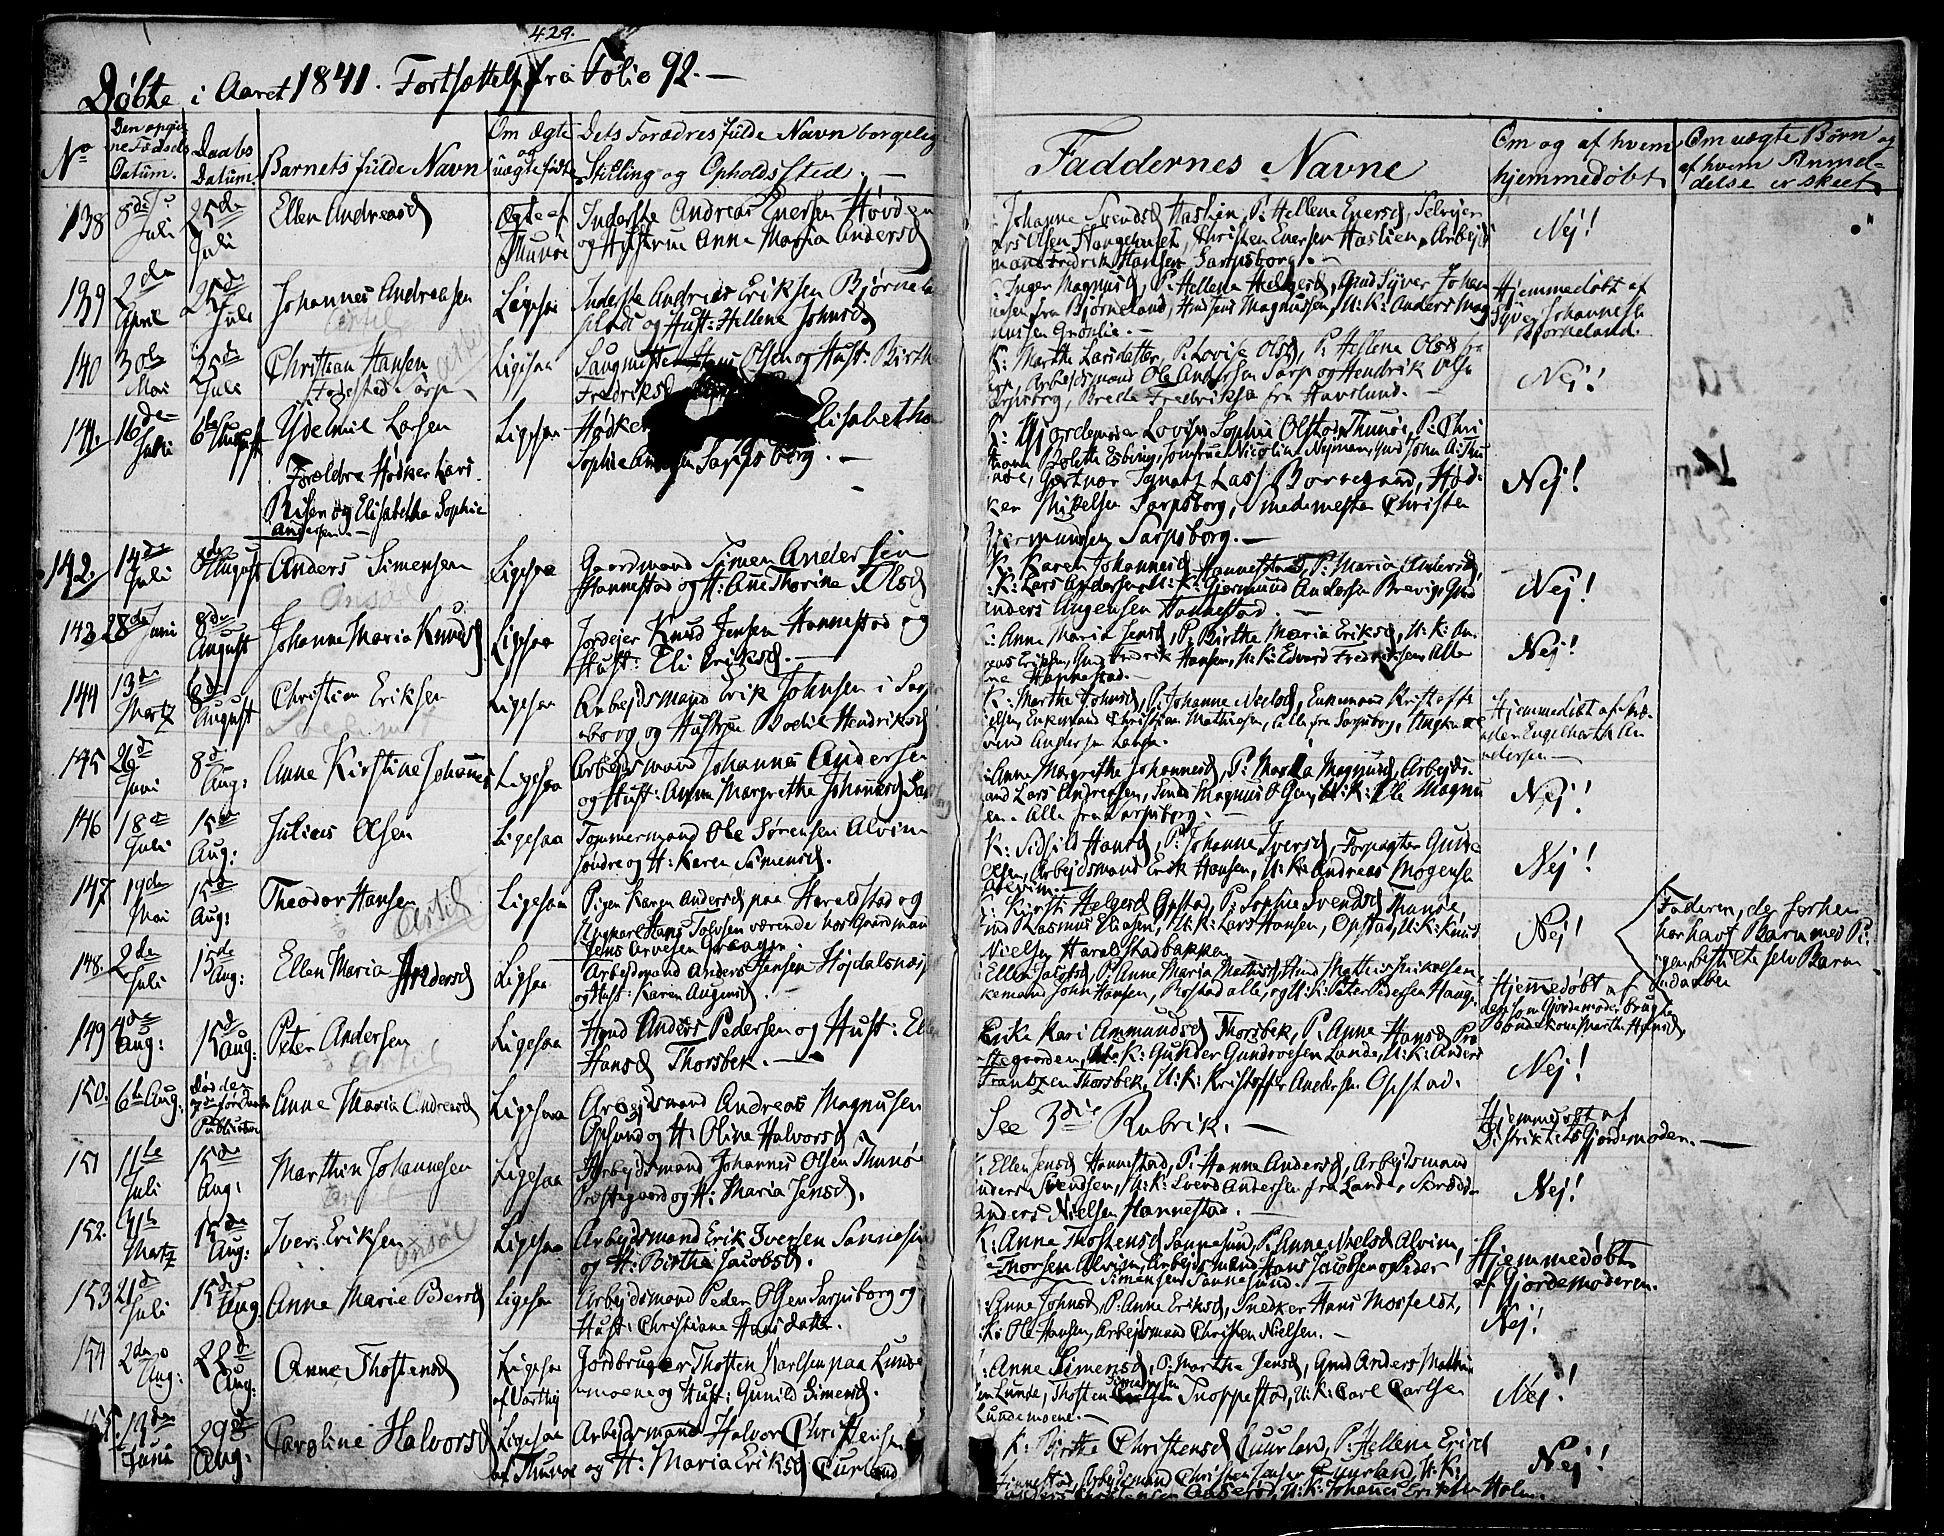 429.
Døbte i Aaret 1841. Fortsættelse fra Folio 92. —
No
Den opgivne Fødsels Datum.
Daabs Datum.
Barnets fulde Navn
Om Ægte og uægte født
Dets Forædres fulde Navn borgelig
Stilling og Opholdssted. —
Faddernes Navne
Om og af hvem
hjemmedøbt
Om uægte Børn og
af hvem Anmel-
delse er skeet
138
8de Juli
25de Juli
Ellen Andreasd
Ægte af Thunøe
Inderste Andreas Enersen Høvden
og Hustrue Anne Maria Andersd
Johanne Svendsd Haslien, P: Hellene Enersd, Selveier
Olsen Haugehuset, Christen Enersen Haslien, Arbejds
mand Fredrik Hansen Sarpsborg. —
Nej!
139
2de April
25de Juli
Johannes Andreasen
Ligesaa
Inderste Andrias Eriksen Bjørneland
plads og Hust: Hellene Johnsd
Inger Magnusd, P: Hellene Helgesd, Gmd Syver Johan
nesen fra Bjørneland, Magnussen, U: K: Anders Mag
nussen Grønlie. —
Hjemmedøbt af
Syver Johannesen
Bjørneland.
140
30te Mai
25de Juli
Christian Hansen
Fødested Sarp
Ligesaa
Saugmester Hans Olsen og Hust: Birthe
Fredriksd
K: Marthe Larsdatter, P: Lovise Olsd, P: Hellene Olsd fra
Sarp, Arbejdsmand Ole Andersen Sarp og Hendrik Olsen
Sarpsborg, Brede Fredriksen fra Havslund. —
Nej!
141.
16de Juli
6te August
Ydemil Larsen
Forældre Høker Lars
Risen og Elisabetha Sophie
Andersen. —
Ligesaa
Høker
Elisabetha
Sophie Andersen Sarpsborg. —
K: Gjordemoder Lovise Sophie Olsen Thunøe, P: Chri
stiane Bolette Esbing, Jomfrue Nicoline Nejman, Gmd John A: Thu
nøe, Gartner Ignatz Lassen Borregaard, Hød-
ker Mikelsen Sarpsborg, Smedemester Christen
Gjermundsen Sarpsborg. —
Nej!
142.
14de Juli
8de August
Anders Simensen
Onsøe
Ligesaa
Gaardmand Simen Andersen
Hannestad og H: Ane Thorine Olsd
K: Karen Johannesd Hannestad, P: Maria Andersd,
U: K: Lars Andersen, U: K: Gjermund Andersen Brevig, Gmd
Anders Augensen Hannestad. —
Nej!
143
28de Juni
8de August
Johanne Maria Knudsd
Ligesaa
Jordejer Knud Jensen Hannestad og
Hust: Eli Eriksd. —
Anne Maria Jensd, P: Birthe Maria Eriksd, U: K: An
Eriksen, Gmd Fredrik Hansen, U: K: Edvard Fredriksen Alle
fra Hannestad. —
Nej!
144
13de Martz
8de August
Christian Eriksen
Ligesaa
Arbejdsmand Erik Johnsen i Sarps
borg og Hustrue Bodil Hendriksd
K: Marthe Johnsd, P: Johanne Neelsd, Enkemand Kristoffer
Nielsen, Enkemand Christian Mathiesen, Alle fra Sarpsborg, Ungkarl
Svend Andersen Lande.
Hjemmedøbt af Snæ-
der Engelhardt An
dersen —
145
26de Juni
8de Aug:
Anne Kirstine Johannesd
Ligesaa
Arbejdsmand Johannes Andersen
og Hust: Anne Margrethe Johannesd
Anne Margrethe Johannesd, P: Maria Magnusd, Arbejds-
mand Lars Andresen, Smed Magnus Olsen, U: K: Ole Magnu
sen. Alle fra Sarpsborg. —
Nej!
146
18de Juli
15de Aug:
Julius Olsen
Ligesaa
Tømmermand Ole Sørensen Alvim
søndre og H: Karen Simensd.
K: Sidsild Hansd, P: Johanne Iversd, Forpagter Gude
Olsen, Arbejdsmand Erik Hansen, U: K: Andreas Mogensen
Alvim. —
Nej!
147
19de Mai
15de Aug:
Theodor Hansen
Ligesaa
Pigen Karen Andersd paa Haraldstad og
Ungkarl Hans Tolvsen værende hos Gaardmand
Jens Arvesen Graager.
K: Kirsti Helgesd Opstad, P: Sophie Svendsd Thunøe,
Gmd Rasmus Eliasen, U: K: Lars Hansen, Opstad, U: K: Knud
Nielsen Haraldstadbakken
Nej!
Faderen, der forhen
har havt Barn med Pi-
gen, bestilte selv Barne
daaben
148.
2de Juli
15de Aug:
Ellen Maria Andersd
Ligesaa
Arbejdsmand Anders Hansen Højdalsnæs
og Hust: Karen Augensd.
Ellen Jacobsd, P: Anne Maria Mathisd, Gmd
kemand John Hansen, Rostad alle, og U: K: Peter Pedersen Hauge
Hjemmedøbt af
den som Gjordemoder brugte
Bondekone Marthe Hansd
149
4de Aug:
15de Aug:
Peter Andersen
Ligesaa
Gmd Anders Pedersen og Hust: Ellen
Hansd Thorsbek. —
Enke Kari Ammundsd Thorsbek, P: Anne Hansd Præ
stegaarden, U: K: Gunder Gundersen Lande, U: K: Anders
Frantzen Thorsbek, U: K: Kristoffer Andersen Opstad.
Nej!
150.
6te Aug:
Død den
Publication
Anne Maria Andreasd
Ligesaa
Arbejdsmand Andreas Magnusen
Opsund og H: Oline Halvorsd
See 3die Rubrik. —
Hjemmedøbt af
Distriktets Gjordemoder. —
151
11te Juli
15de Aug:
Marthin Johannesen
Ligesaa
Arbejdsmand Johannes Olsen Thunøe
Præstegaard og H: Maria Jensd.
Ellen Jensd Hannestad, P: Hanne Andersd, Arbejdsmand
Anders Svendsen, U: K: Svend Andersen fra Lande, Skræd
Anders Nielsen Hannestad. —
Nej!
152.
Martz
15de Aug:
Iver Eriksen
Onsøe
Ligesaa
Arbejdsmand Erik Iversen Sannesund
og H: Birthe Jacobsd.
K: Anne Thostensd Sannesund, P: Anne Nielsd Alvim,
Thorsen Alvim, Arbejdsmand Hans Jacobsen og Peder
Simensen Sannesund.
Hjemmedøbt
af Gjordemoderen.
153
21de Juli
15de Aug
Anne Marie Pedersd
Ligesaa
Arbejdsmand Peder Olsen Sarpsborg og
Hust: Christiane Hansdatter.
Anne Johnsd, P: Anne Eriksd, Snedker Hans Mosfeldt,
U: K: Ole Hansen, Arbejdsmand Christen Nielsen. —
Nej!
154
2de Aug:
22de Aug:
Anne Thostensd
Ligesaa af Varthejg
Jordbruger Thosten Karlsen paa Lunde
moene og Hust: Gunild Simensd.
Anne Simensd, P: Marthe Jensd, Gmd Anders Mathi
sen Lunde, Thosten Simensen Snoppestad, U: K: Carl Carlsen
Lundemoene. —
Nej!
155.
Juni
29de Aug:
Caroline Halvorsd
Ligesaa af Thunøe
Arbejdsmand Halvor Christensen
og H: Maria Eriksd Curland
K: Birthe Christensd Cuurland, P: Hellene Eriksd
Hannestad, Arbejdsmand Christen Jansen Cuurland, U: K:
U: K: Johannes Eriksen Holm.
Nej!